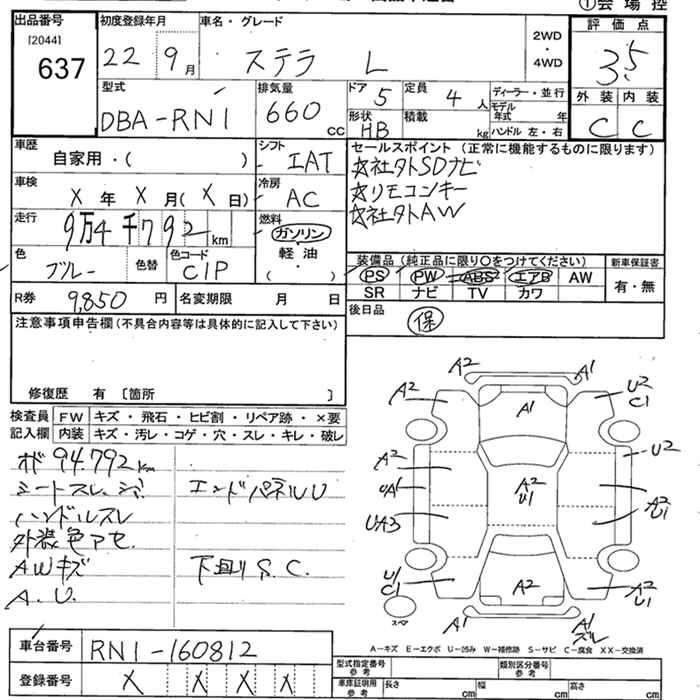 ①会場控
出品番号
[2044]
637
初度登録年月
22 9月
車名・グレード
ステラ L
2WD
・
4WD
評価点
3.5
外装 内装
C C
型式
DBA-RN1
排気量
660 cc
ドア 5
定員 4 人
形状 HB
積載 kg
ディーラー・並行
モデル年式 年
ハンドル 左・右
車歴
自家用・( )
シフト
IAT
車検
X 年 X 月(X 日)
冷房
AC
走行
9万4千792 km
燃料
ガソリン
・
軽油
( )
色
ブルー
色替
色コード
C1P
R券 9,850 円
名変期限 月 日
セールスポイント (正常に機能するものに限ります)
☆社外SDナビ
☆リモコンキー
☆社外AW
装備品 (純正品に限り○をつけてください)
PS PW ABS エアB AW
SR ナビ TV カワ
新車保証書
有・無
後日品
保
注意事項申告欄 (不具合内容等は具体的に記入して下さい)
修復歴 有 〔箇所 〕
検査員記入欄
FW キズ・飛石・ヒビ割・リペア跡・×要
内装 キズ・汚レ・コゲ・穴・スレ・キレ・破レ
メボ 94.792km
シートスレ、シミ
エンドパネルU
ハンドルスレ
外装色アセ
AWキズ
下廻りS.C.
A.U.
A2 A1
A2 A1 U2
C1
A2 U2
UA1 A2 U1 A2 U1
UA3
U1 C1 A2 A2 U1
スペア
A1 A1
ズレ
A-キズ E-エクボ U-凹み W-補修跡 S-サビ C-腐食 XX-交換済
車台番号 RN1-160812
登録番号 X X X X
型式指定番号 参考
類別区分番号 参考
車庫証明用 参考
長さ cm
幅 cm
高さ cm